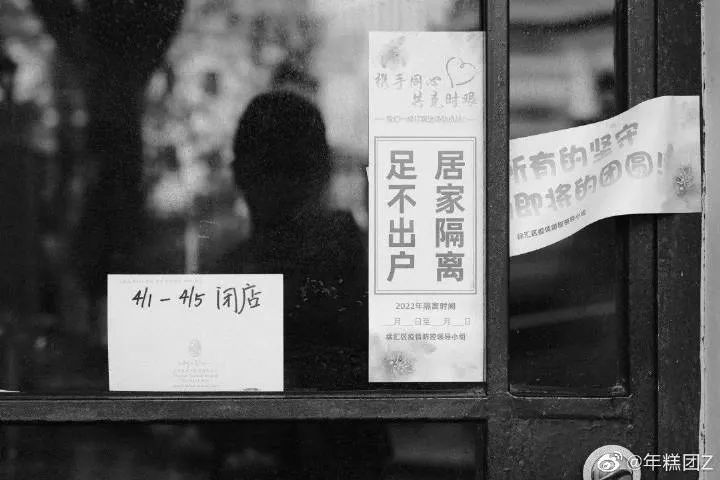 4/1 - 4/5 闭店
携手同心
共克时艰
居家隔离
足不出户
2022年隔离时间
__月__日至__月__日
徐汇区疫情防控领导小组
所有的坚守
即将的团圆!
徐汇区疫情防控领导小组
@年糕团Z